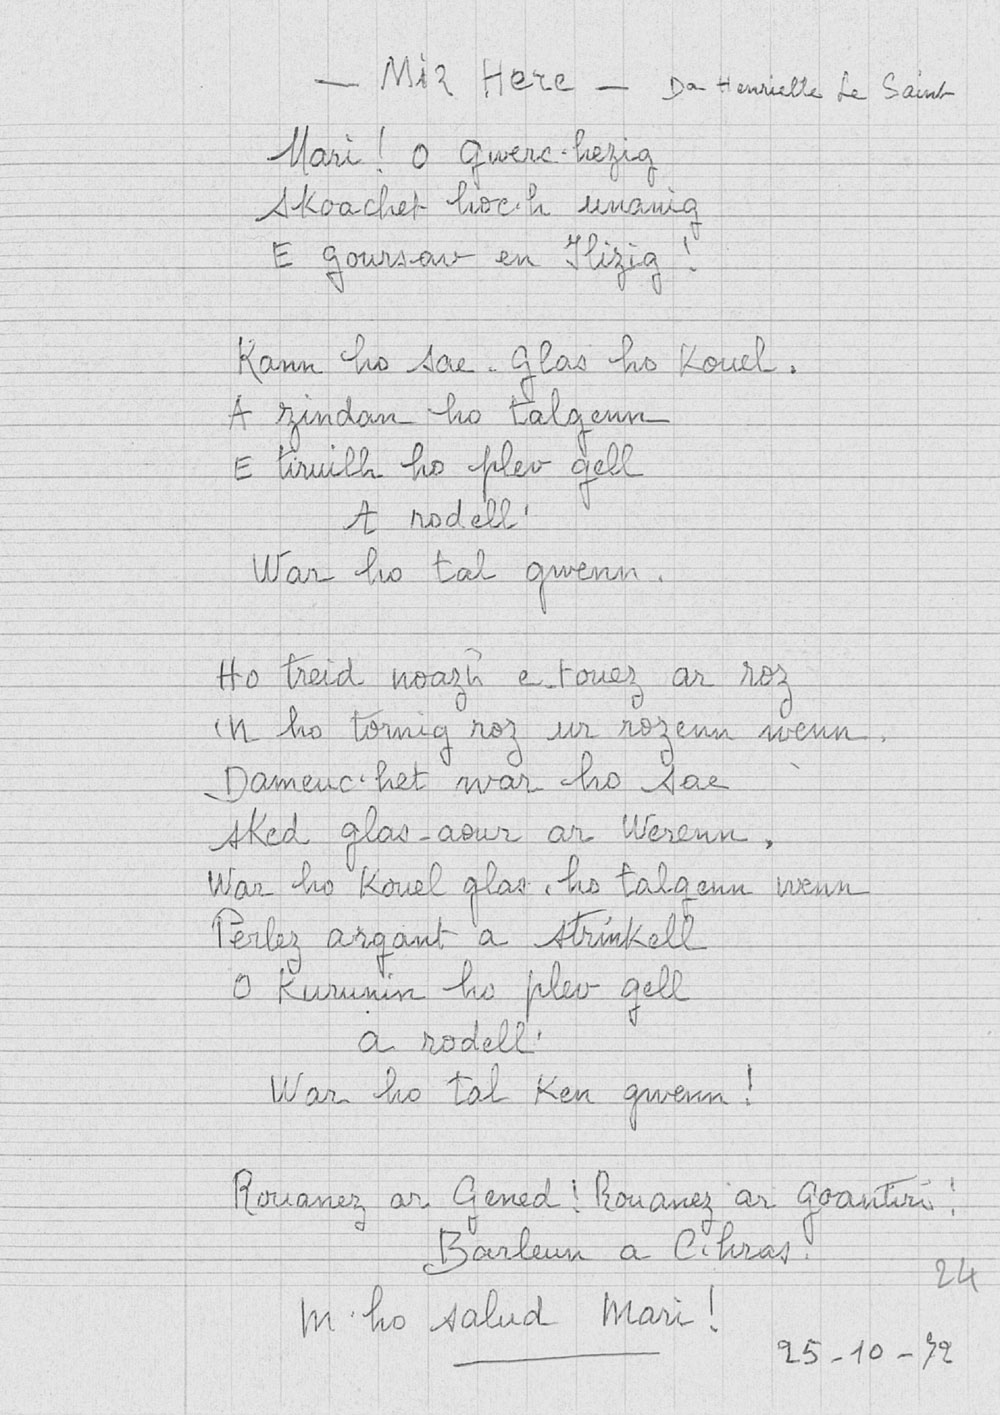 — Miz Here — Da Henriette Le Saint
Mari! O Gwerc'hezig
Skoachet hoc'h unanig
E goursav en Ilizig!
Kann ho sae. Glas ho Kouel.
A zindan ho talgenn
E tiruilh ho plev gell
A rodell'
War ho tal gwenn.
Ho treid noazh e-touez ar roz
'N ho tornig roz ur rozenn wenn.
Dameuc'het war ho sae
Sked glas-aour ar Werenn,
War ho Kouel glas, ho talgenn wenn
Perlez argant a strinkell
O Kurunin ho plev gell
a rodell'
War ho tal Ken gwenn!
Rouanez ar Gened! Rouanez ar Goantiri!
Barleun a C'hras!
M'ho salud Mari!
24
25-10-72